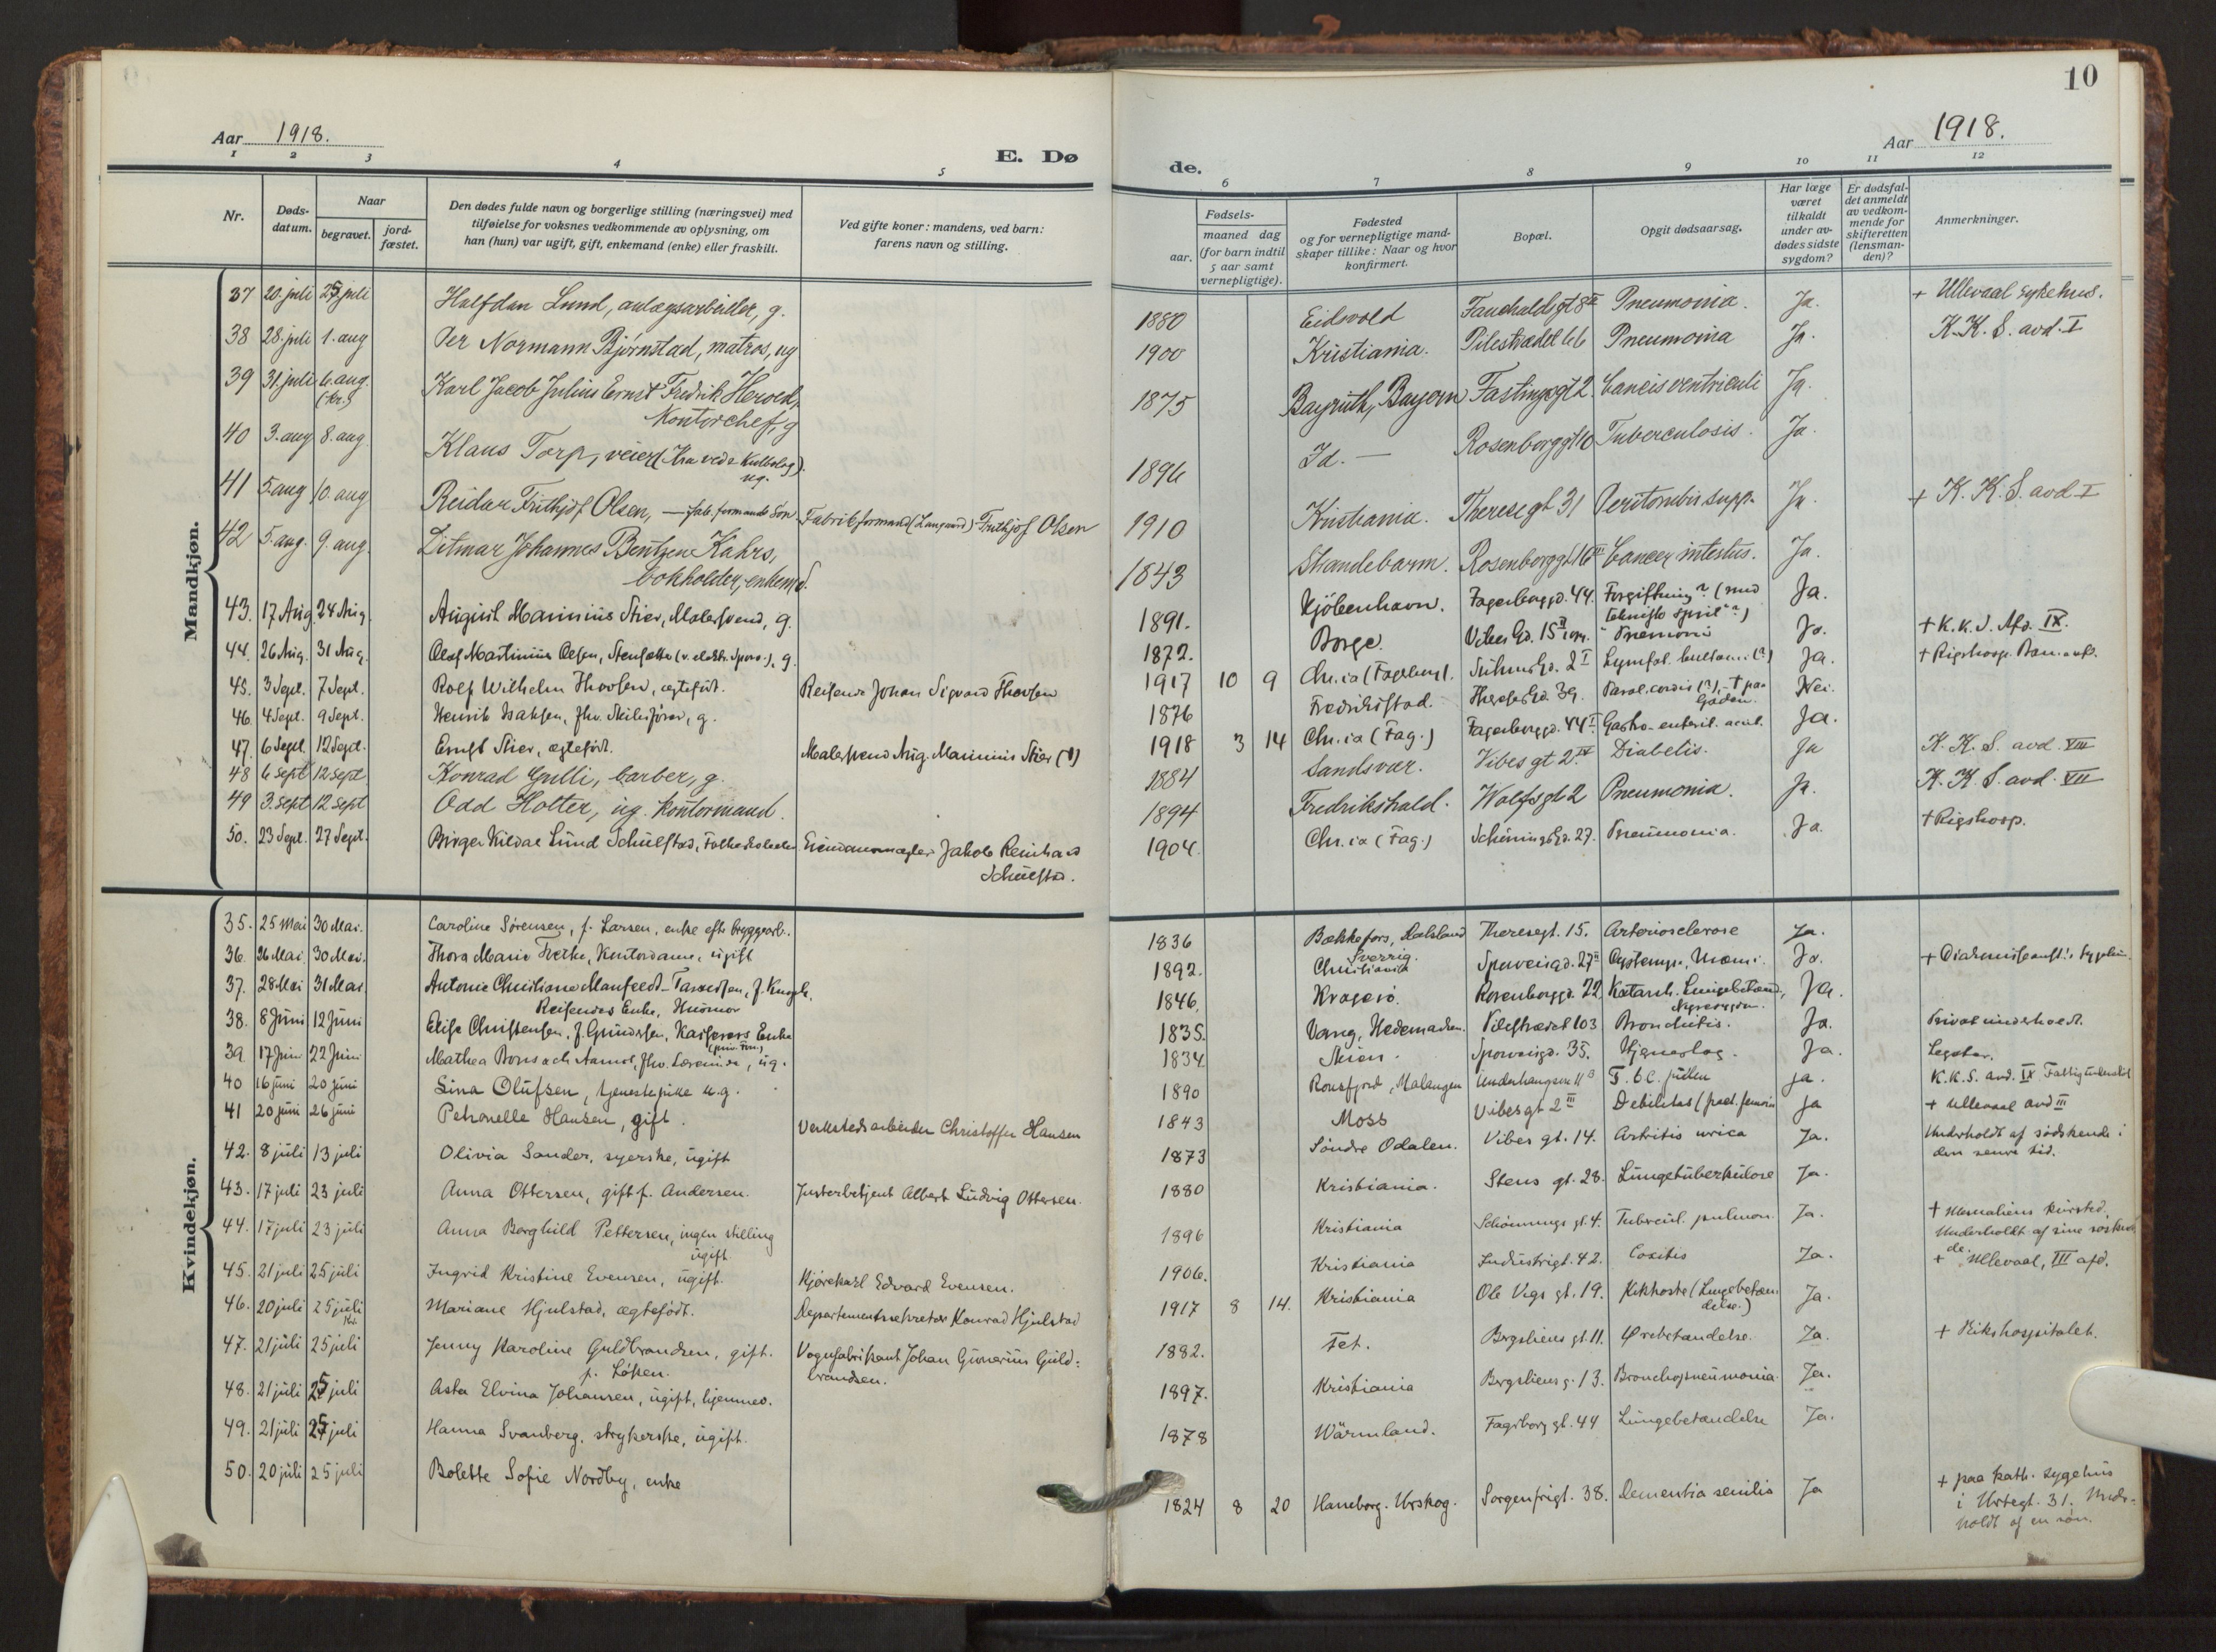 10
Aar 1918.
E. Dø
de.
Aar 1918.
1 2 3 4 5 6 7 8 9 10 11 12
Nr.
Døds-
datum.
Naar
begravet.
jord-
fæstet.
Den dødes fulde navn og borgerlige stilling (næringsvei) med
tilføielse for voksnes vedkommende av oplysning, om
han (hun) var ugift, gift, enkemand (enke) eller fraskilt.
Ved gifte koner: mandens, ved barn:
farens navn og stilling.
Fødsels-
aar.
maaned dag
(for barn indtil
5 aar samt
vernepligtige).
Fødested
og for vernepligtige mand-
skaper tillike: Naar og hvor
konfirmert.
Bopæl.
Opgit dødsaarsag.
Har læge
været
tilkaldt
under av-
dødes sidste
sygdom?
Er dødsfal-
det anmeldt
av vedkom-
mende for
skifteretten
(lensman-
den)?
Anmerkninger.
Mandkjøn.
37 20. juli 25 juli Halfdan Lund, anlægsarbeider, g. 1880 Eidsvold Fauchaldsgt 8 Pneumonia. Ja. + Ullevaal sykehus.
38 28. juli 1. aug Per Normann Bjørnstad, matros, ug 1900 Kristiania. Pilestrædet 66 Pneumonia Ja. K. K. S. avd. I
39 31. juli 6. aug. (kr.) Karl Jacob Julius Ernst Fredrik Herold,
kontorchef, g 1875 Bayruth, Bayern Fastingsgt 2. Cancis ventriculi Ja.
40 3. aug 8. aug. Klaus Torp, veier (Kra ved & Kulbolag)
ug. 1896 Id. — Rosenborggt 10 Tuberculosis. Ja.
41 5. aug 10. aug Reidar Frithjof Olsen, — fab. formands søn Fabrikformand (Langaard) Frithjof Olsen 1910 Kristiania. Theresegt 31 Peritonitis supp. Ja + K. K. S. avd I
42 5. aug. 9. aug. Ditmar Johannes Bentzene Kahrs,
bokholder, enkemd. 1843 Strandebarm. Rosenborggt 16 III Cancer intestus. Ja.
43. 17 Aug. 24 Aug. August Marinius Stier, Malersvend, g. 1891. Kjöbenhavn. Fagerborggd. 44. Forgiftning? (med
teknisk sprit"?) Ja.
44. 26 Aug. 31 Aug. Olaf Martinius Olsen, Stensætter (v. elektr. Sporv.), g. 1872. Borge. Vibes Gd. 15 Pnemoni Ja. + K. K. S. Afd. IX.
45. 3 Sept. 7 Sept. Rolf Wilhelm Thorsen, ægtefödt. Reisende Johan Sigvard Thorsen 1917 10 9 Chr.ia (Fagerborg). Suhmsgd. 2 I Lymfat. Ja. + Rigshosp. Barneafd.
46. 4 Sept. 9 Sept. Henrik Isaksen, fhv. Skibsförer, g. 1876 Fredrikstad. Theresegd. 39. Paral. cordis (?), + paa
Gaden. Nei.
47. 6 Sept. 12 Sept. Ernst Stier, ægtefödt. Malersvend Aug. Marinius Stier (†) 1918 3 14 Chr.ia (Fag.) Fagerborggd. 44 I Gastro-enterit. acut. Ja.
48 6 sept 12 sept Konrad Gulli, barber, g. 1884 Sandsvær. Vibesgt 2 IV Diabetis. Ja K. K. S. avd. VIII
49 3. sept 12 sept Odd Holter, ug. kontormand. 1894 Fredrikshald. Wolfsgt 2 Pneumonia. Ja. K. K. S. avd. VII
50. 23 Sept. 27 Sept. Birger Kildal Lund Schulstad, Folkeskoleelev Eiendomsmægler Jakob Reinhard
Schulstad. 1904. Chr.ia (Fag.) Schöningsgd. 27. Pneumonia. Ja. + Rigshosp.
Kvindekjøn.
35. 25 Mai 30 Mai. Caroline Sörensen, f. Larsen, enke efter bryggearb. 1836 Bækkefors, Dalsland
Sverrig. Theresegt. 15. Arteriosclerose Ja.
36. 26 Mai. 30 Mai. Thora Marie Kontordame, ugift 1892. Christiania Sporveisgd. 27 Ja. + Diakonisseanst.'s Sygehus.
37. 28 Mai 31 Mai Antonie Christiane
Reisendes Enke, Husmor 1846. Kragerö. Rosenborggd. 22. Katarrh. Lungebetænd.,
Nyresygdom. Ja.
38. 8 Juni 12 Juni Elise Christensen, f. Gundersen, Kasserers Enke
(priv. Fm.) 1835. Vang, Hedemarken. Pilestrædet 103 Bronchitis. Ja. Privat underholdt.
39 17 Juni 22 Juni Mathea fhv. Lærerinde, ug. 1834. Skien. Sporveisgd. 35. Hjerneslag. Ja. Legater.
40 16 juni 20 juni Lina Olufsen, tjenestepike u.g. 1890 Rossfjord, Malangen Underhaugsvn 11 T.b.c. pulm ja. K. K. S. avd. IX Fattigunderstöt
41 20 juni 26 juni Petronelle Hansen, gift. Verkstedsarbeider Christoffer Hansen 1843 Moss Vibesgt 2 III Debilitas ja + Ullevaal avd III
42. 8 juli 13 juli Olivia Sander, syerske, ugift 1873 Söndre Odalen. Vibes gt. 14. Artritis urica Ja. Underholdt af södskende i
den senere tid.
43. 17 juli 23 juli Anna Ottersen, gift f. Andersen. Justerbetjent Albert Ludvig Ottersen. 1880 Kristiania. Stens gt. 28. Lungetuberkulose Ja.
44. 17 juli 23 juli Anna Borghild Pettersen, ingen stilling
ugift. 1896 Kristiania Schönnings gt. 4. Tubercul. pulmon. Ja. + kursted.
Underholdt af sine söskende.
45. 21 juli 25 juli Ingrid Kristine Evensen, ugift. Kjörekarl Edvard Evensen. 1906. Kristiania Industrigt. 42. Coxitis Ja. + Ullevaal, III afd.
46. 20 juli 25 juli Kr. Mariane Hjulstad, ægtefödt. Departementssekretær Konrad Hjulstad 1917 8 14. Kristiania Ole Vigs gt. 19. Kikhoste (Lungebetæn
delse.) Ja.
47. 21 juli 25 juli Jenny Karoline Guldbrandsen, gift.
f. Löken. Vognfabrikant Johan Gunerius Guld=
brandsen. 1882. Fet. Bergsliens gt. 11. Ørebetændelse. Ja. + Rikshospitalet.
48. 21 juli 25 juli Asta Elvina Johansen, ugift, hjemmev. 1897. Kristiania Bergsliens g. 13. Bronchopneumonia. Ja.
49. 21 juli 25 juli Hanna Svanberg, strykerske, ugift. 1878 Wärmland. Fagerborg gt. 44 Lungebetændelse Ja.
50. 20 juli 25 juli Bolette Sofie Nordby, enke 1824 8 20 Haneborg. Urskog. Sorgenfrigt. 38. Dementia senilis Ja + paa kath. sygehus
i Urtegt. 31. Under=
holdt af en sön.